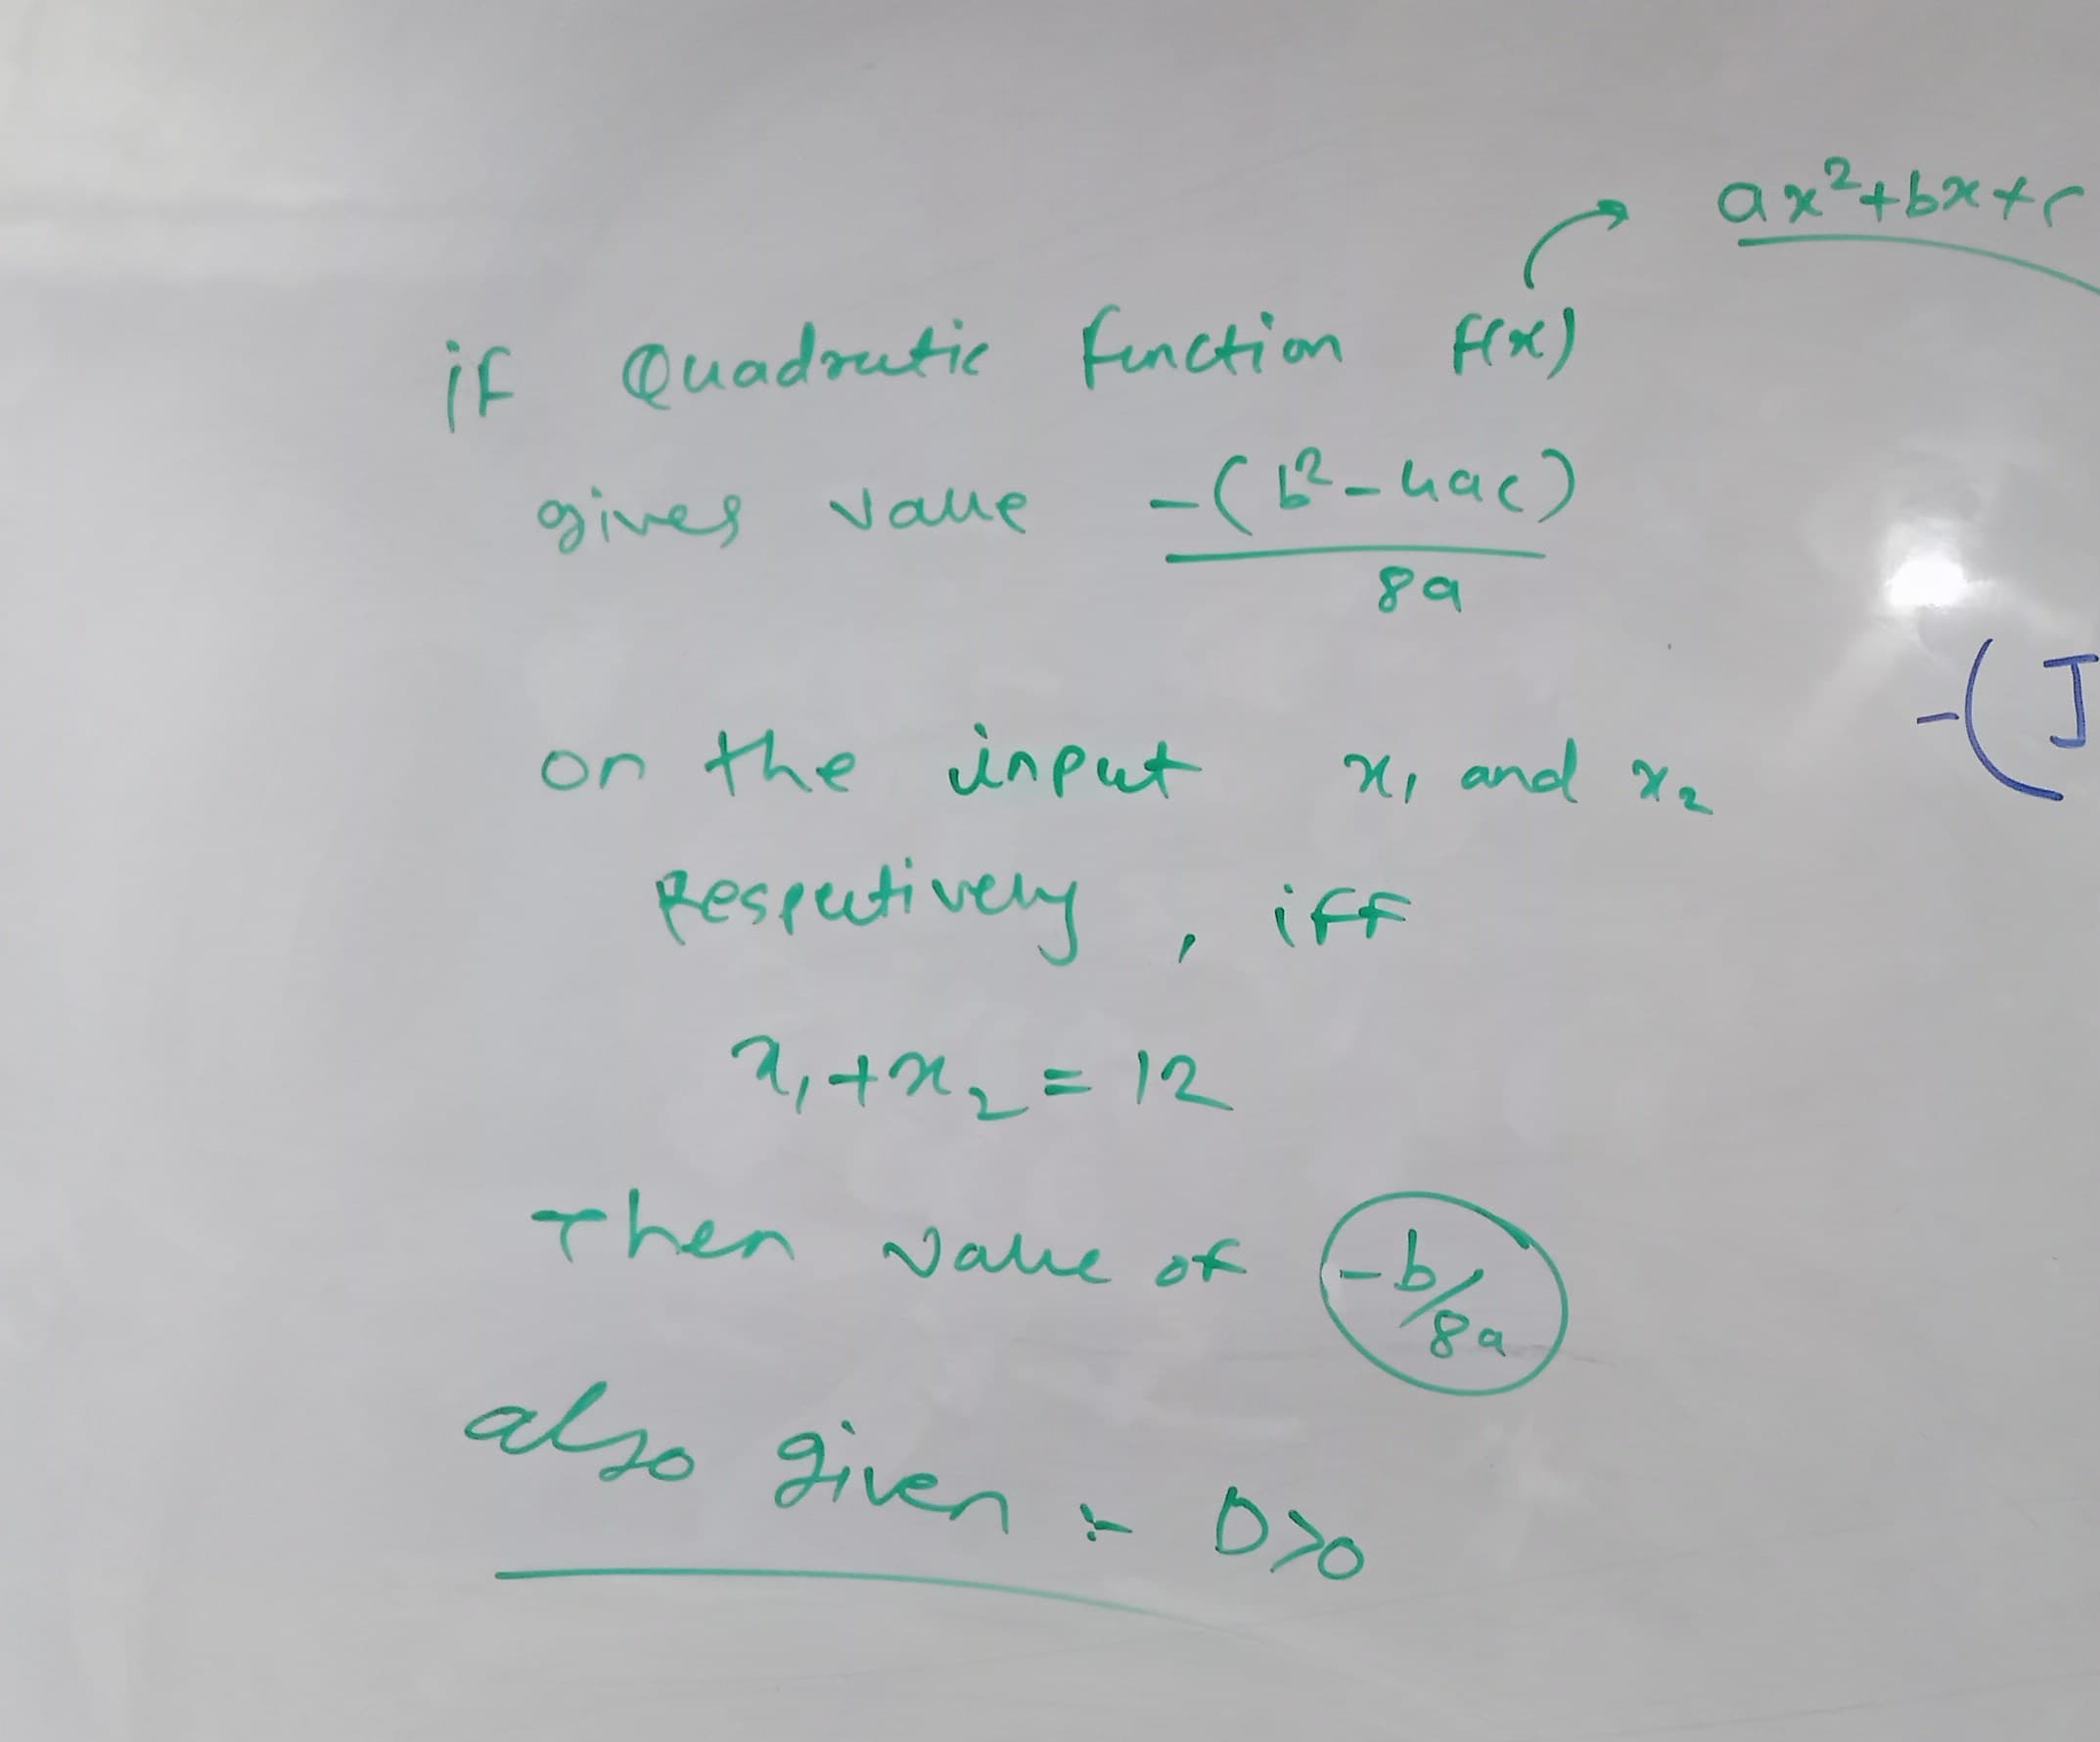 ax²+bx+c
if Quadratic function f(x)
gives value -(b²-4ac)
8a
on the input x₁ and x₂
Respectively, iff
x₁+x₂=12
Then value of -b/8a
also given :- D>0